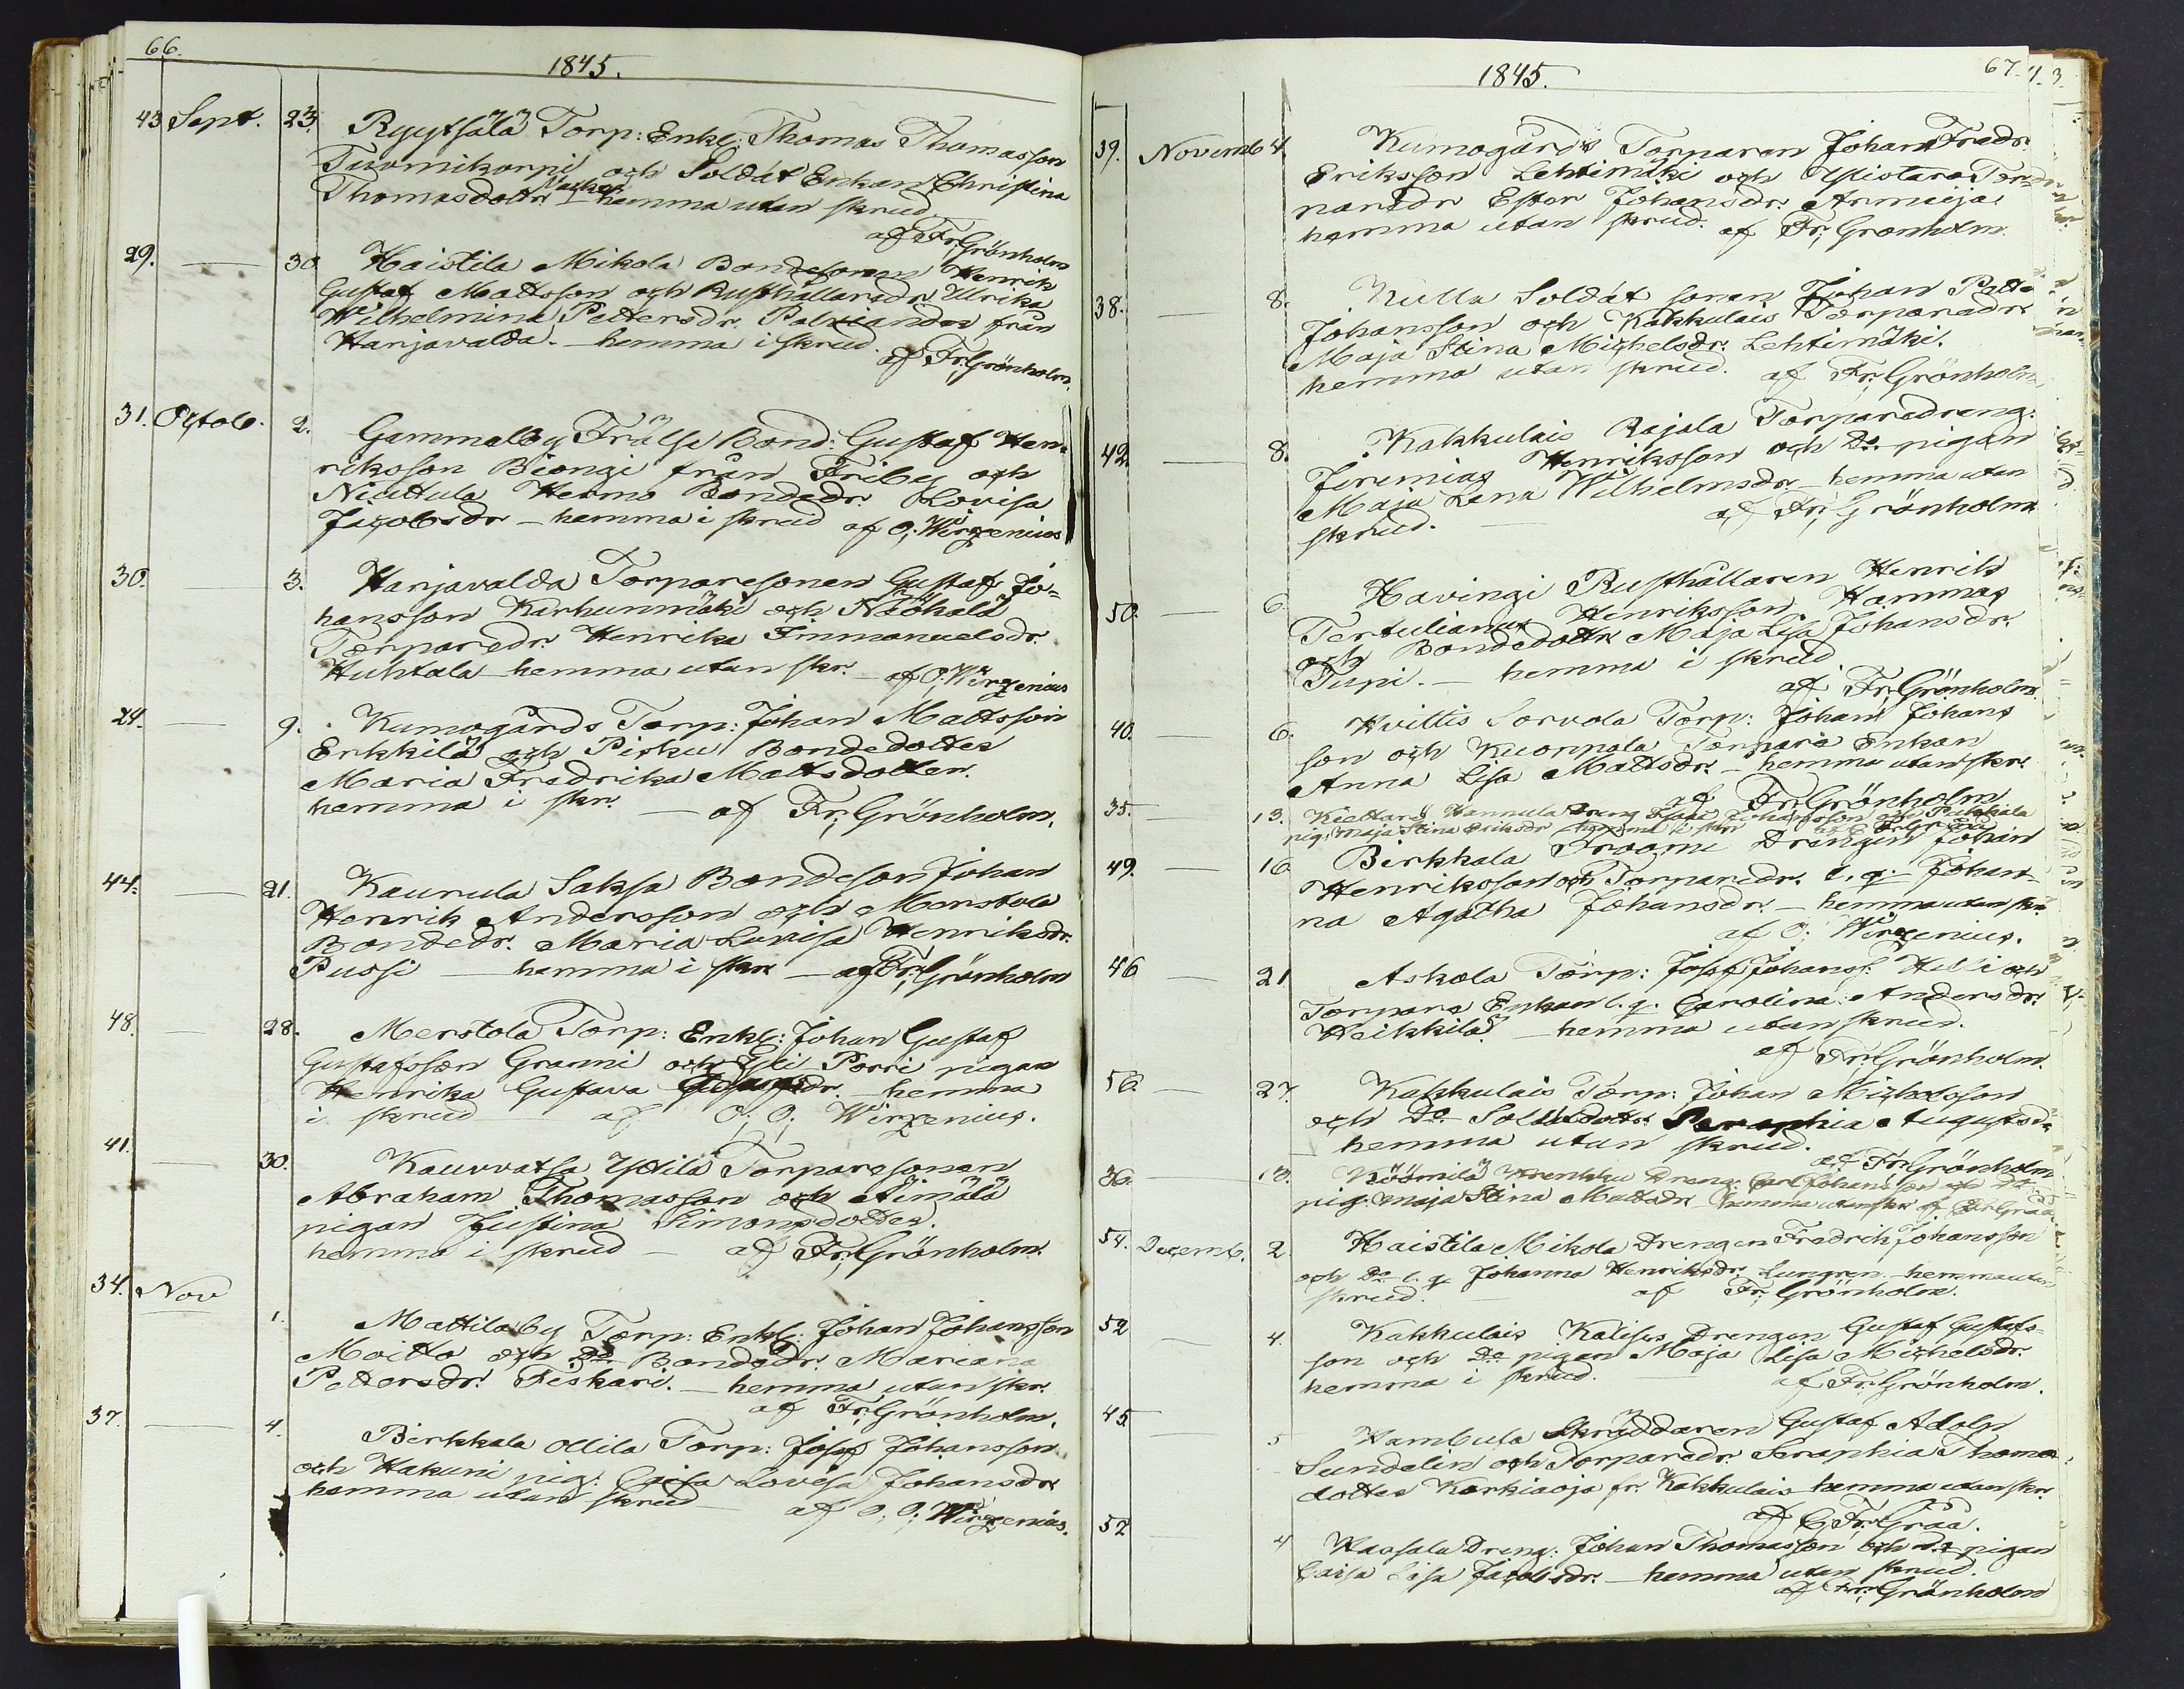 66.
1845.
43 Sept. 23. Ryytsälä Torp: Enkl: Thomas Thomasson
Tuomikorpi och Soldat Enkan Christina
Thomasdotr Vacker hemma utan skrud
af Fr: Grönholm
29. — 30 Haistila Mikola Bondesonen Henrik
Gustaf Mattsson och Rusthållaredr. Ulrika
Wilhelmina Pettersdr. Palviander från
Harjavalda. — hemma i skrud.
af Fr: Grönholm.
31. Octob. 2. Gammelby Frälse Bond: Gustaf Hen-
riksson Biongi från Friby och
Niuttula Hermo Bondedr. Lovisa
Jacobsdr — hemma i skrud af O: Wirzenius
30. — 3. Harjavalda Torparesonen Gustaf Jo-
hansson Karhunmäki och Näökälä
Torparedr. Henrika Immanuelsdr.
Huhtala hemma utan skr. — af O: Wirzenius
24. — 9. Kumogårds Torp: Johan Mattsson
Erkkilä och Pirku Bondedotter
Maria Fredrika Mattsdotter.
hemma i skr. — af Fr: Grönholm.
44. — 21. Kaurula Saksa Bondeson Johan
Henrik Andersson och Merstola
Bondedr. Maria Lovisa Henriksdr.
Pussi — hemma i skr — af Fr: Grönholm
48. — 28. Merstola Torp: Enkl: Johan Gustaf
Gustafsson Granni och Yli Porri pigan
Henrika Gustava dr. hemma
i skrud — af O: O: Wirzenius.
41. — 30. Kauvatsa Yttilä Torparesonen
Abraham Thomasson och Äimälä
pigan Justina Simonsdotter.
hemma i skrud — af Fr: Grönholm.
34. Nov 1. Mattilaby Torp: Enkl: Johan Johansson
Moitto och Do Bondedr. Mariana
Pettersdr. Fiskari. — hemma utan skr.
af Fr: Grönholm.
37. — 4. Birkkala Ollila Torp: Josef Johansson
och Hakuni pig: Caisa Lovisa Johansdr
hemma utan skrud — af O: O: Wirzenius.
1845.
67.
39. Novemb 4. Kumogårds Torparen Johan Fredr.
Eriksson Lehtimäki och Ylistaro Tor-
paredr Ester Johansdr. Arмija.
hemma utan skrud. af Fr: Grönholm.
38. — 8. Kulla Soldat sonen Johan Petter
Johansson och Kakkulais Torparedr
Maja Stina Michelsdr. Lehtimäki.
hemma utan skrud. af Fr: Grönholm.
42. — 8. Kakkulais Rajala Torparedreng.
Jeremias Henriksson och Do pigan
Maja Lena Wilhelmsdr hemma utan
skrud. — af Fr: Grönholm
50. — 6. Havingi Rusthållaren Henrik
Tertulianus Henriksson Hammas
och Bondedottr Maja Lisa Johansdr.
Tupi. — hemma i skrud
af Fr: Grönholm.
40. — 6. Hvittis Sorvola Torp: Johan Johans
son och Kuoppala Torpare Enkan
Anna Lisa Mattsdr. — hemma utan skr.
af Fr: Grönholm
35. — 13. Kiettare Hannula Dreng Johansson och Pukkala
pig: Maja Stina Eriksdr hemma i skr
49. — 16 Birkkala Froomi Drengen Johan
Henriksson och Torparedr. l. q. Johan-
na Agatha Johansdr. — hemma utan skr.
af O: Wirzenius.
46 — 21 Askola Torp: Josef Johanss: Hilli och
Torpare Enkan l. q. Carolina Andersdr.
Heikkilä — hemma utan skrud.
af Fr: Grönholm.
56. — 27. Kakkulais Torp: Johan Michelsson
och Do Soldatdotr. Seraphia Augustsdr
hemma utan skrud.
af Fr: Grönholm
36. — 13. Köömilä Krenkku Dreng: Carl Johansson och Do
pig: Maja Stina Mattsdr — hemma utan skr af C Fr Gråå
54. Decemb. 2 Haistila Mikola Drengen Fredrik Johansson
och Do l. q. Johanna Henriksdr. Lungren hemma utan
skrud. — af Fr: Grönholm.
52 — 4. Kakkulais Kalises Drengen Gustaf Gustafs-
son och Do pigan Maja Lisa Michelsdr.
hemma i skrud. — af Fr: Grönholm.
45 5 Hambula Skräddaren Gustaf Adolp
Sundelin och Torparedr. Seraphia Thomas
dotter Korkiaoja fr. Kakkulais hemma utan skr.
af C Fr: Gråå.
57 4 Haasala Dreng: Johan Thomasson och do pigan
Caisa Lisa Jacobsdr. — hemma utan skrud.
af Fr: Grönholm